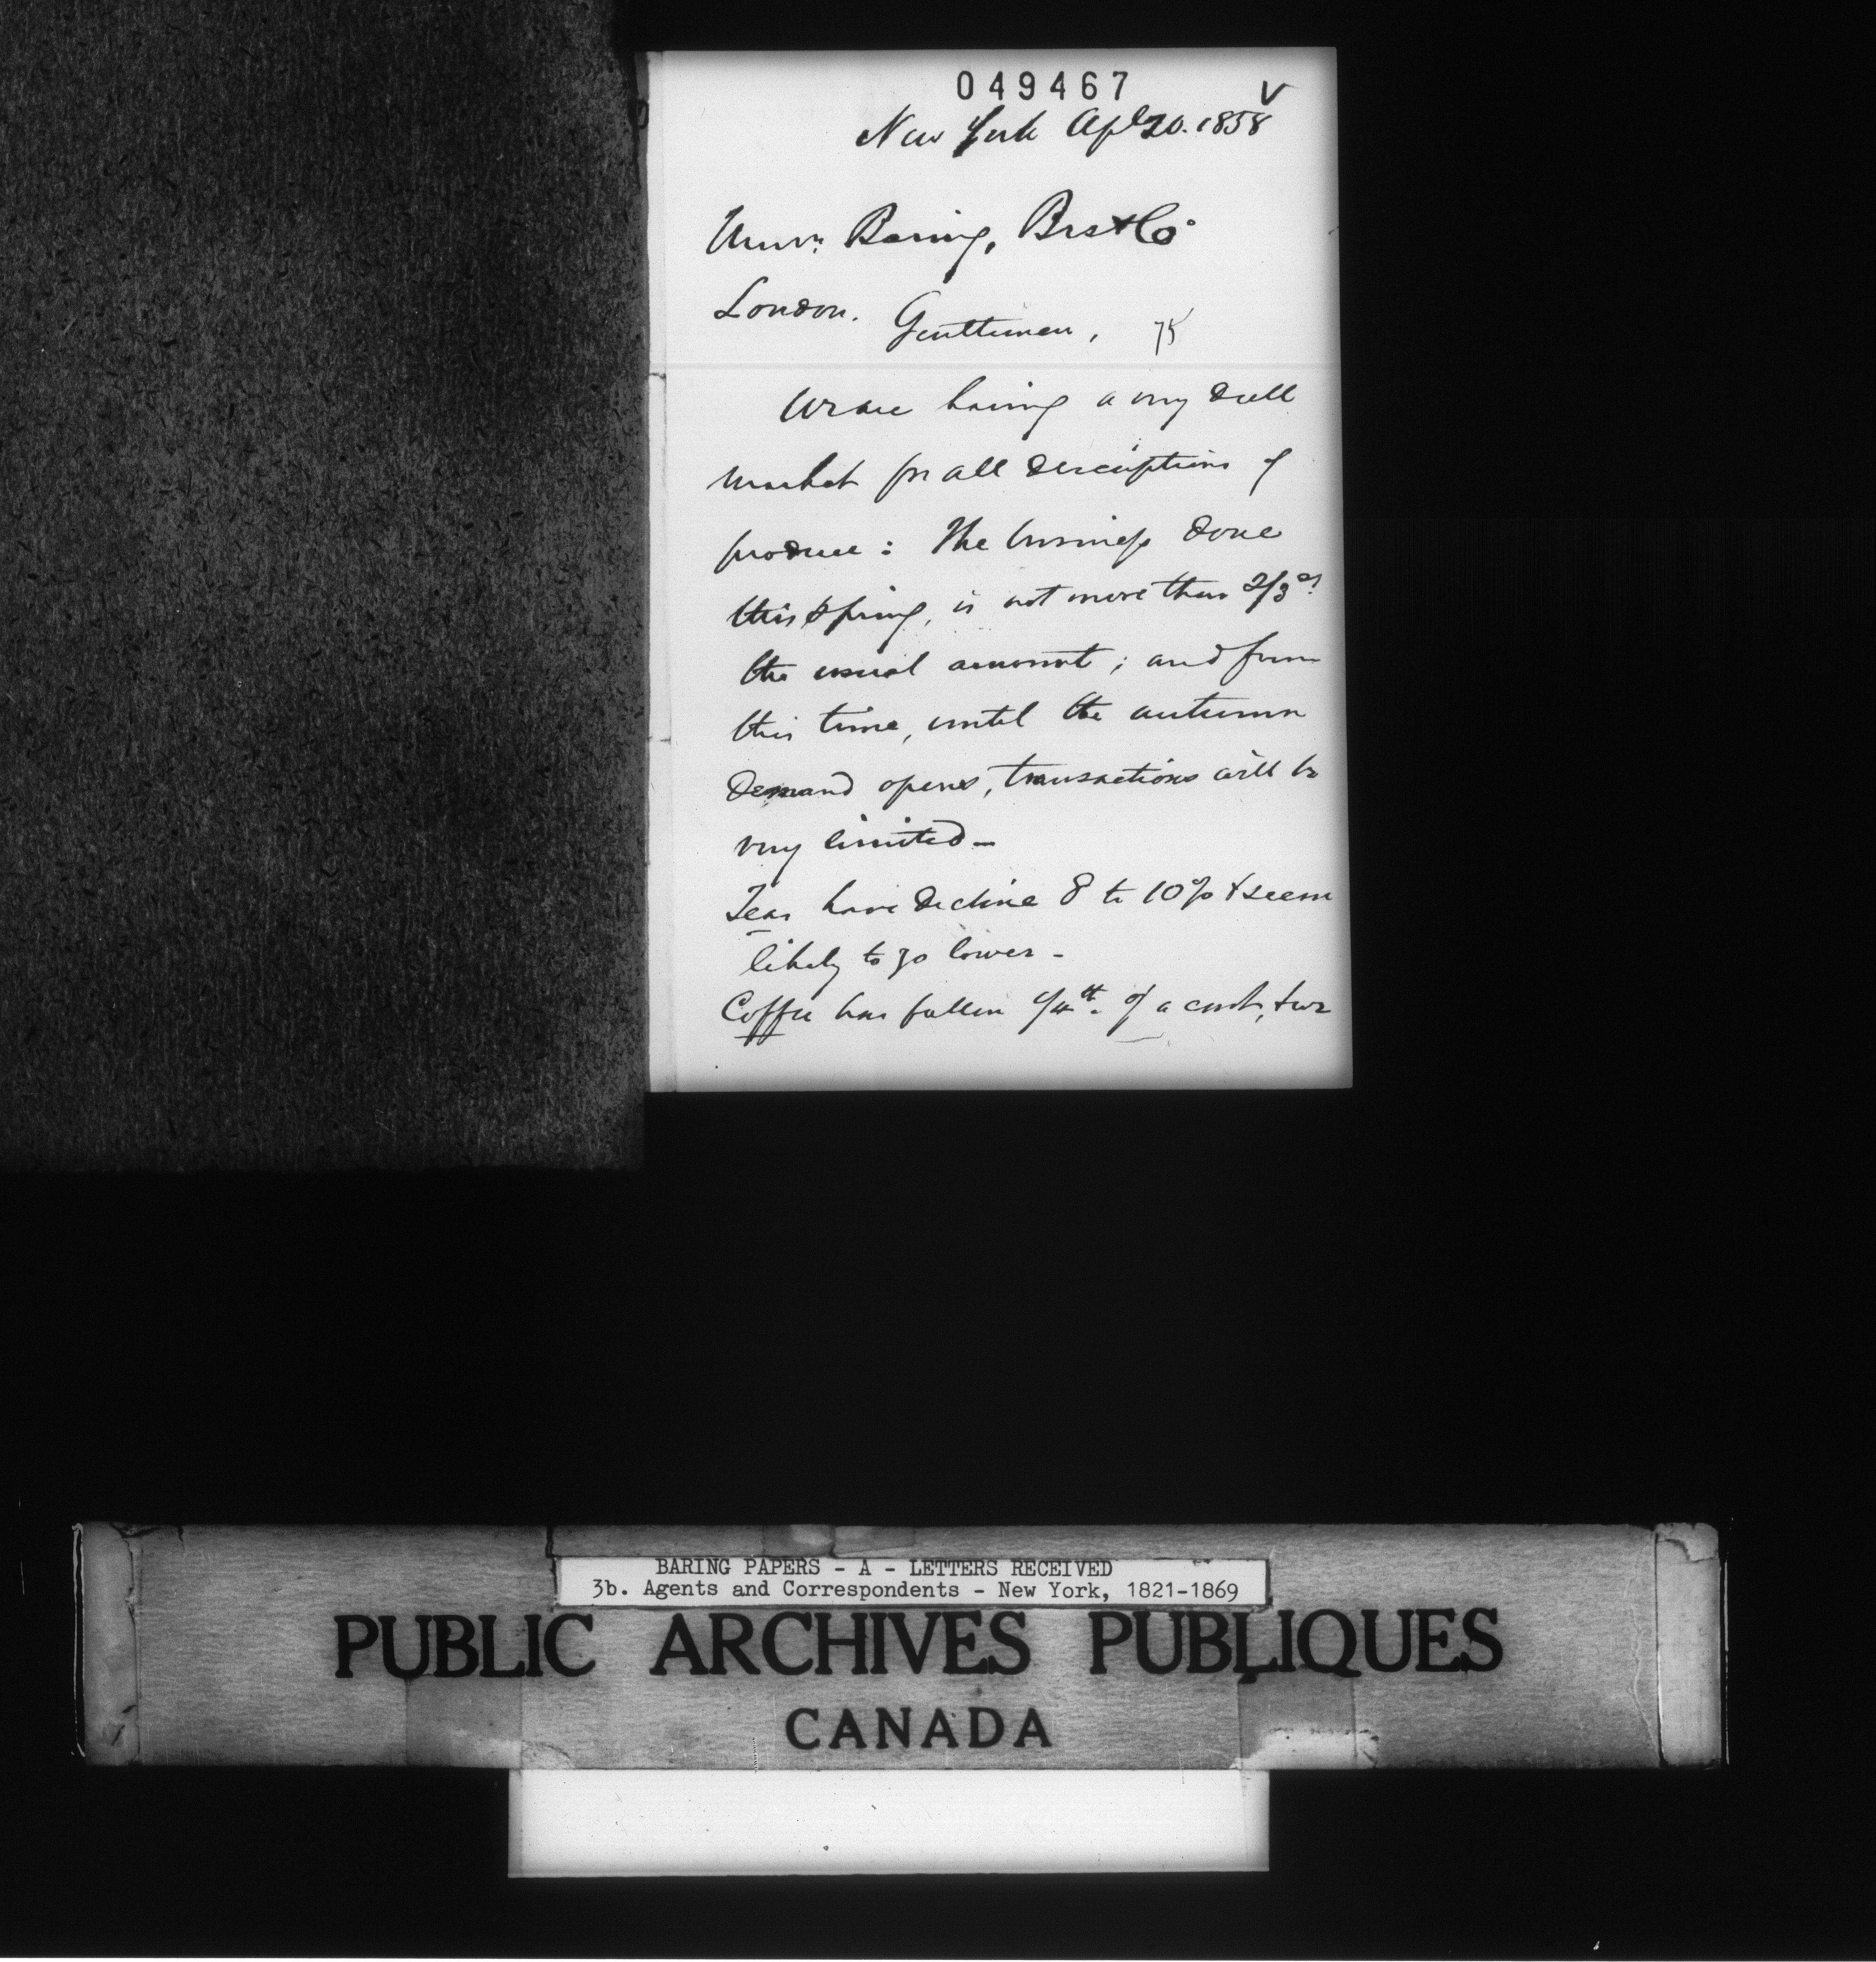 049467
V
New York Apl 20. 1858
Messrs. Baring, Brs & Co
London.
Gentlemen, 75
We are having a very dull
market for all descriptions of
produce: The business done
this Spring, is not more than 2/3ds
the usual amount; and from
this time, until the autumn
demand opens, transactions will be
very limited—
Teas have decline 8 to 10% & seem
likely to go lower—
Coffee has fallen 1/4th of a cent, & we
BARING PAPERS - A - LETTERS RECEIVED
3b. Agents and Correspondents - New York, 1821-1869
PUBLIC ARCHIVES PUBLIQUES
CANADA